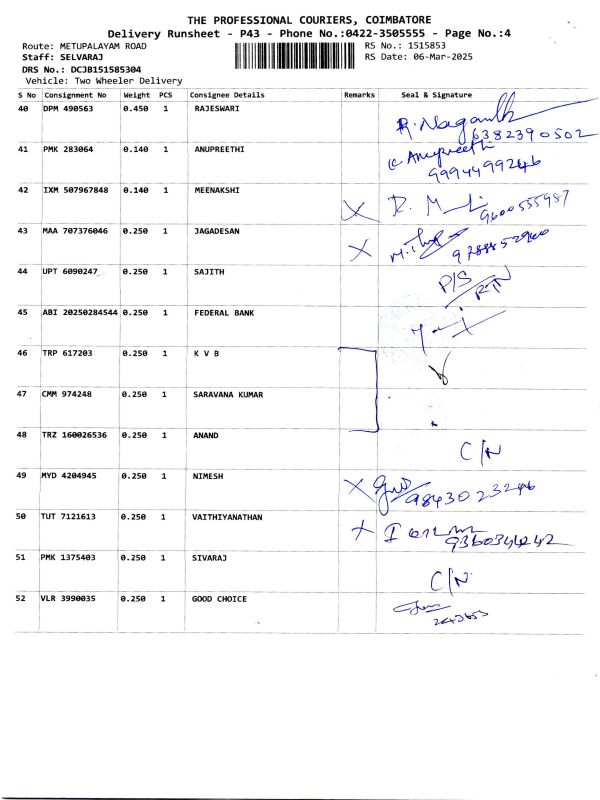 THE PROFESSIONAL COURIERS, COIMBATORE
Delivery Runsheet - P43 - Phone No.:0422-3505555 - Page No.:4
Route: METUPALAYAM ROAD RS No.: 1515853
Staff: SELVARAJ RS Date: 06-Mar-2025
DRS No.: DCJB151585304
Vehicle: Two Wheeler Delivery
S No Consignment No Weight PCS Consignee Details Remarks Seal & Signature
40 DPM 490563 0.450 1 RAJESWARI R. Naganth
6382390502
41 PMK 283064 0.140 1 ANUPREETHI Anupreethi
9994499246
42 IXM 507967848 0.140 1 MEENAKSHI X
9600555987
43 MAA 707376046 0.250 1 JAGADESAN X
44 UPT 6090247 0.250 1 SAJITH P/S
45 ABI 20250284544 0.250 1 FEDERAL BANK
46 TRP 617203 0.250 1 K V B
47 CMM 974248 0.250 1 SARAVANA KUMAR
48 TRZ 160026536 0.250 1 ANAND C/N
49 MYD 4204945 0.250 1 NIMESH X
9843023246
50 TUT 7121613 0.250 1 VAITHIYANATHAN X
9360344242
51 PMK 1375403 0.250 1 SIVARAJ C/N
52 VLR 3990035 0.250 1 GOOD CHOICE